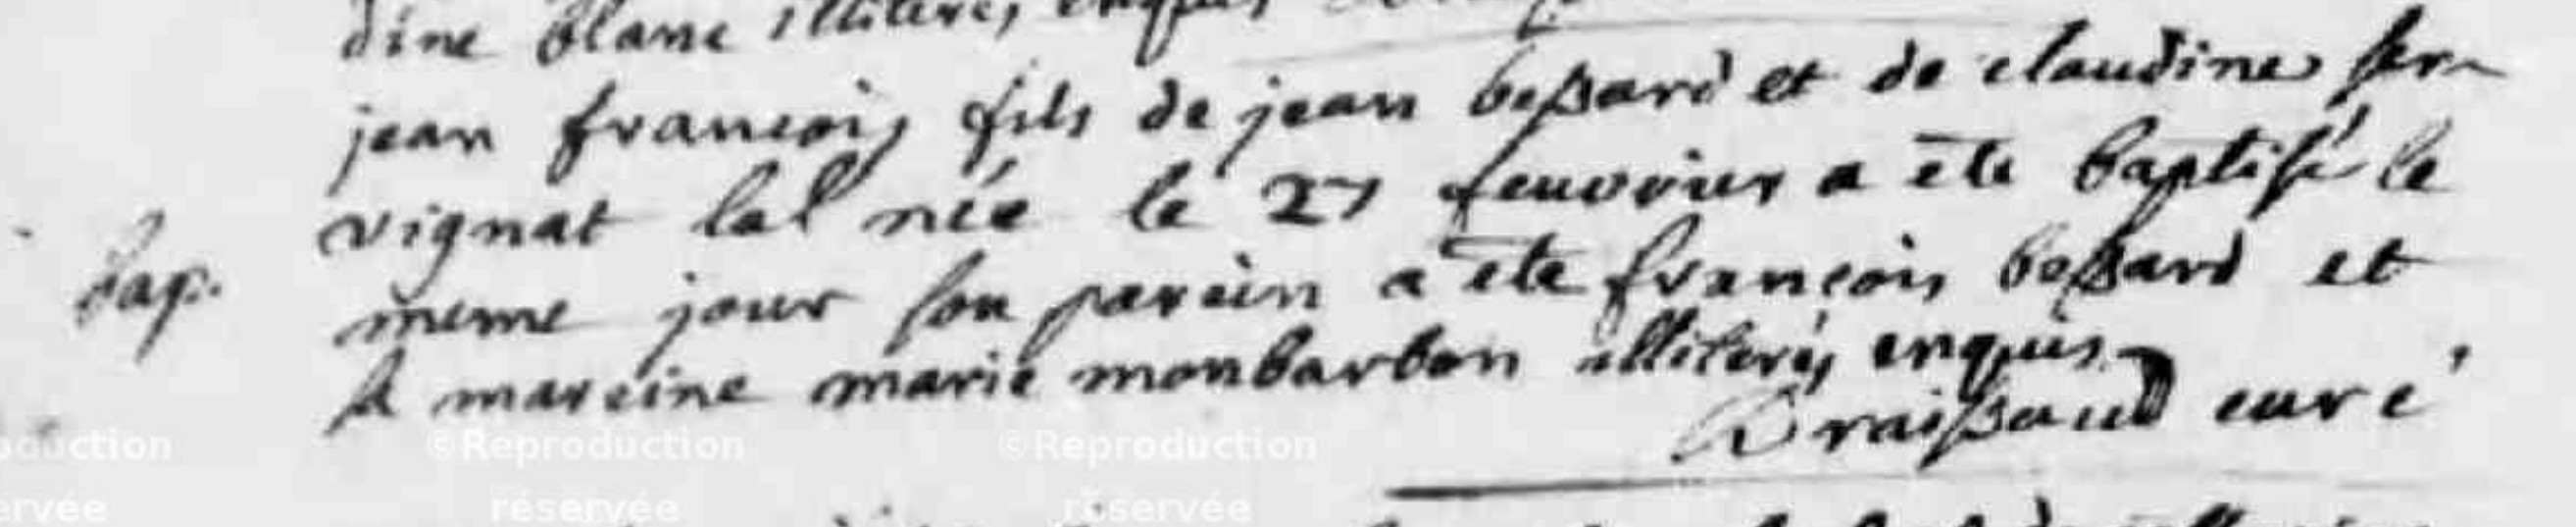 dine blanc illiterés enquis
jean francois fils de jean bessard et de claudine ser-
vignat lab née le 27 feuvrier a ete baptisé le
bap.
meme jour son parein a ete françois bessard et
sa mareine marie monbarbon illiterés enquis
Braissoud curé
©Reproduction ©Reproduction
réservée réservée